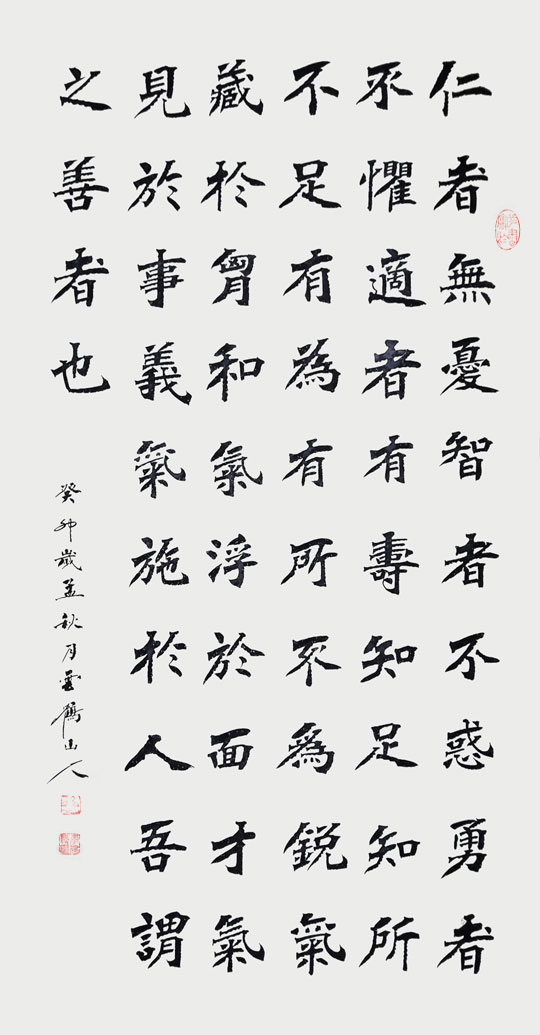 仁者無憂智者不惑勇者
不懼適者有壽知足知所
不足有為有所不為銳氣
藏於胷和氣浮於面才氣
見於事義氣施於人吾謂
之善者也
癸卯歲孟秋月雲鶴山人